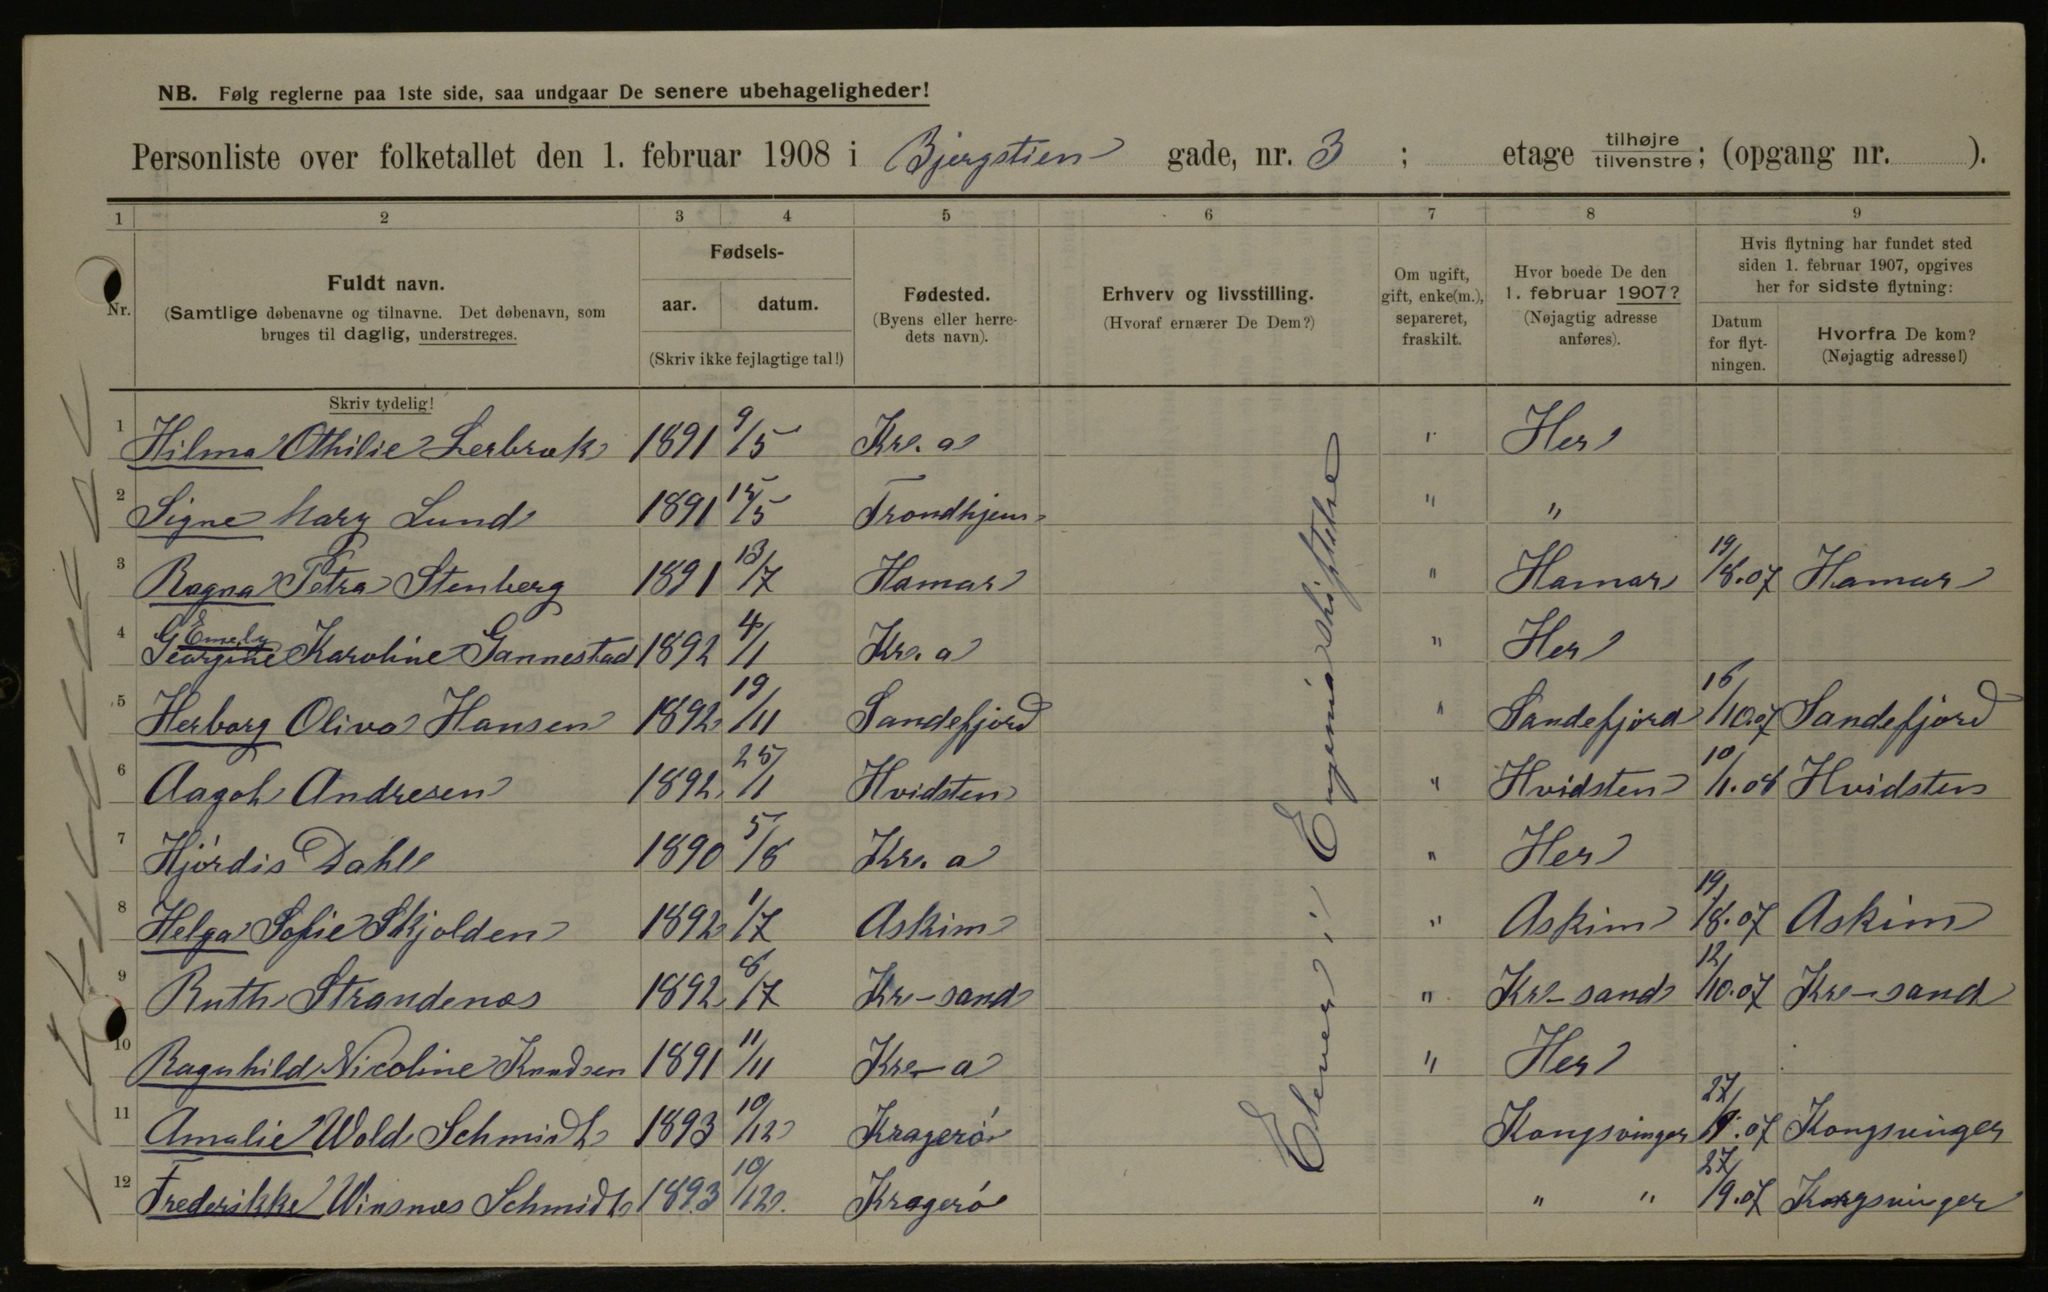 NB. Følg reglerne paa 1ste side, saa undgaar De senere ubehageligheder!
Personliste over folketallet den 1. februar 1908 i Bjergstien gade, nr. 3 ; etage tilhøjre tilvenstre; (opgang nr. ).
1 2 3 4 5 6 7 8 9
Nr.
Fuldt navn.
(Samtlige døbenavne og tilnavne. Det døbenavn, som
bruges til daglig, understreges.
Skriv tydelig!
Fødsels-
aar. datum.
(Skriv ikke fejlagtige tal!)
Fødested.
(Byens eller herre-
dets navn).
Erhverv og livsstilling.
(Hvoraf ernærer De Dem?)
Om ugift,
gift, enke(m.),
separeret,
fraskilt.
Hvor boede De den
1. februar 1907?
(Nøjagtig adresse
anføres).
Hvis flytning har fundet sted
siden 1. februar 1907, opgives
her for sidste flytning:
Datum
for flyt-
ningen.
Hvorfra De kom?
(Nøjagtig adresse!)
1 Hilma Othilie Lerbræk 1891 9/5 Kr.a " Her
2 Signe Mary Lund 1891 15/5 Trondhjem " "
3 Ragna Petra Stenberg 1891 13/7 Hamar " Hamar 19/8.07 Hamar
4 Georgine Emely Karoline Gannestad 1892 4/1 Kr.a " Her
5 Herborg Oliva Hansen 1892 19/11 Sandefjord " Sandefjord 16/10.07 Sandefjord
6 Aagoh Andresen 1892 25/1 Hvidsten " Hvidsten 10/1.08 Hvidsten
7 Hjørdis Dahl 1890 5/8 Kr.a " Her
8 Helga Sofie Skjolden 1892 1/7 Askim " Askim 19/8.07 Askim
9 Ruth Strandenæs 1892 8/7 Kr-sand " Kr-sand 12/10.07 Kr-sand
10 Ragnhild Nicoline Knudsen 1891 11/11 Kr-a " Her
11 Amalie Wold Schmidt 1893 10/12 Kragerø Kongsvinger 27/9.07 Kongsvinger
12 Frederikke Winsnæs Schmidt 1893 10/12. Kragerø " " 27/9.07 Kongsvinger
Elever i Eugeniaskiftelse